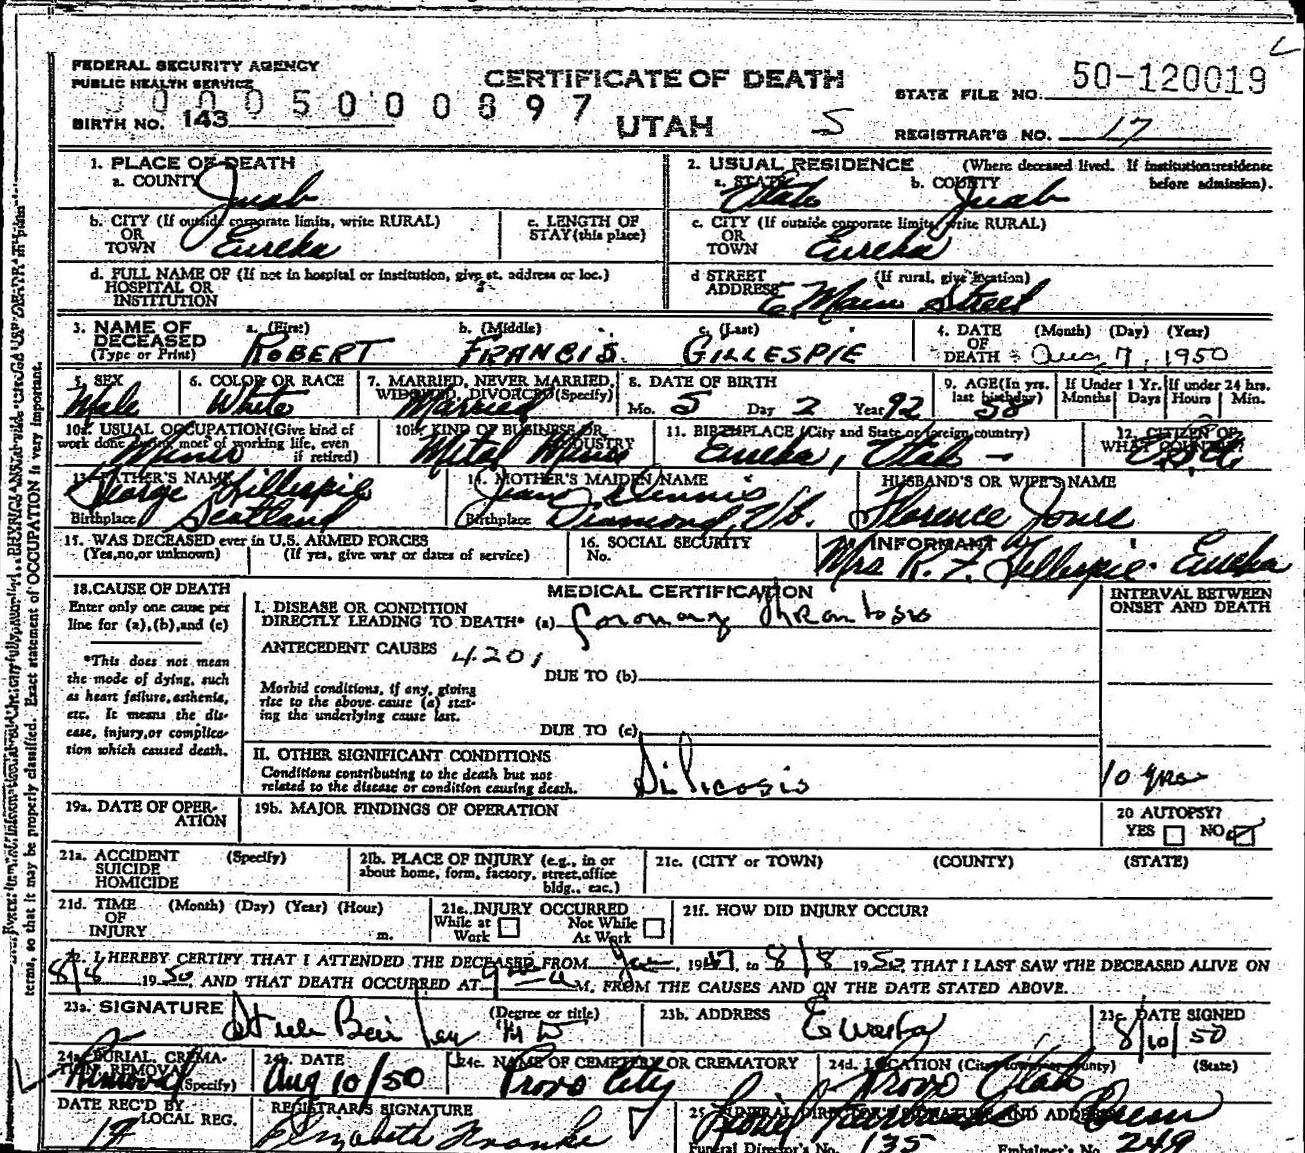 FEDERAL SECURITY AGENCY
PUBLIC HEALTH SERVICE
CERTIFICATE OF DEATH
STATE FILE NO. 50-120019
0 0 0 5 0 0 0 8 9 7
BIRTH NO. 143
UTAH 5
REGISTRAR'S NO. 17
1. PLACE OF DEATH
a. COUNTY Juab
2. USUAL RESIDENCE (Where deceased lived. If institution:residence before admission).
a. STATE Utah b. COUNTY Juab
b. CITY (If outside corporate limits, write RURAL)
OR
TOWN Eureka
c. LENGTH OF
STAY (this place)
c. CITY (If outside corporate limits, write RURAL)
OR
TOWN Eureka
d. FULL NAME OF (If not in hospital or institution, give st. address or loc.)
HOSPITAL OR
INSTITUTION
d STREET (If rural, give location)
ADDRESS E. Main Street
3. NAME OF
DECEASED
(Type or Print)
a. (First) ROBERT
b. (Middle) FRANCIS
c. (Last) GILLESPIE
4. DATE (Month) (Day) (Year)
OF
DEATH Aug 7, 1950
5. SEX
Male
6. COLOR OR RACE
White
7. MARRIED, NEVER MARRIED,
WIDOWED, DIVORCED (Specify)
Married
8. DATE OF BIRTH
Mo. 5 Day 2 Year 92
9. AGE (In yrs.
last birthday) 58
If Under 1 Yr. If under 24 hrs.
Months Days Hours Min.
10a. USUAL OCCUPATION (Give kind of
work done during most of working life, even
if retired)
Miner
10b. KIND OF BUSINESS OR
INDUSTRY
Metal Mines
11. BIRTHPLACE (City and State or foreign country)
Eureka, Utah
12. CITIZEN OF
WHAT COUNTRY?
13. FATHER'S NAME
George Gillespie
Birthplace Scotland
14. MOTHER'S MAIDEN NAME
Jean Dennis
Birthplace Diamond, Ut.
HUSBAND'S OR WIFE'S NAME
Florence Jones
15. WAS DECEASED ever in U.S. ARMED FORCES
(Yes,no,or unknown) (If yes, give war or dates of service)
16. SOCIAL SECURITY
No.
INFORMANT
Mrs R. F. Gillespie - Eureka
18. CAUSE OF DEATH
Enter only one cause per
line for (a),(b),and (c)
*This does not mean
the mode of dying, such
as heart failure, asthenia,
etc. It means the dis-
ease, injury,or complica-
tion which caused death.
MEDICAL CERTIFICATION
INTERVAL BETWEEN
ONSET AND DEATH
I. DISEASE OR CONDITION
DIRECTLY LEADING TO DEATH* (a) Coronary Thrombosis
ANTECEDENT CAUSES 4201
DUE TO (b)
Morbid conditions, if any, giving
rise to the above cause (a) stat-
ing the underlying cause last.
DUE TO (c)
II. OTHER SIGNIFICANT CONDITIONS
Conditions contributing to the death but not
related to the disease or condition causing death.
Silicosis
10 yrs
19a. DATE OF OPER-
ATION
19b. MAJOR FINDINGS OF OPERATION
20 AUTOPSY?
YES NO
21a. ACCIDENT (Specify)
SUICIDE
HOMICIDE
21b. PLACE OF INJURY (e.g., in or
about home, form, factory, street,office
bldg., eac.)
21c. (CITY or TOWN) (COUNTY) (STATE)
21d. TIME (Month) (Day) (Year) (Hour)
OF
INJURY m.
21e. INJURY OCCURRED
While at Work Not While At Work
21f. HOW DID INJURY OCCUR?
22. I HEREBY CERTIFY THAT I ATTENDED THE DECEASED FROM Jan, 1947, to 8/8 1950, THAT I LAST SAW THE DECEASED ALIVE ON
8/8 1950, AND THAT DEATH OCCURRED AT M. FROM THE CAUSES AND ON THE DATE STATED ABOVE.
23a. SIGNATURE Bailey (Degree or title) MD
23b. ADDRESS Eureka
23c. DATE SIGNED
8/10/50
24a. BURIAL, CREMA-
TION, REMOVAL (Specify)
Removal
24b. DATE
Aug 10/50
24c. NAME OF CEMETERY OR CREMATORY
Provo City
24d. LOCATION (City, town, or county) (State)
Provo Utah
DATE REC'D BY
LOCAL REG.
REGISTRAR'S SIGNATURE
Elizabeth Franke
25. FUNERAL DIRECTOR'S SIGNATURE AND ADDRESS
Funeral Director's No. 135 Embalmer's No. 249
terms, so that it may be properly classified. Exact statement of OCCUPATION is very important.